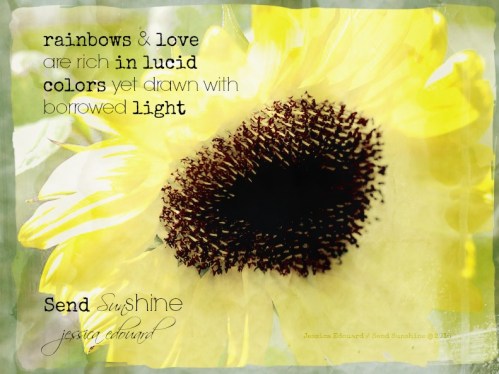 rainbows & love
are rich in lucid
colors yet drawn with
borrowed light
Send Sunshine
jessica edouard
Jessica Edouard / Send Sunshine ©